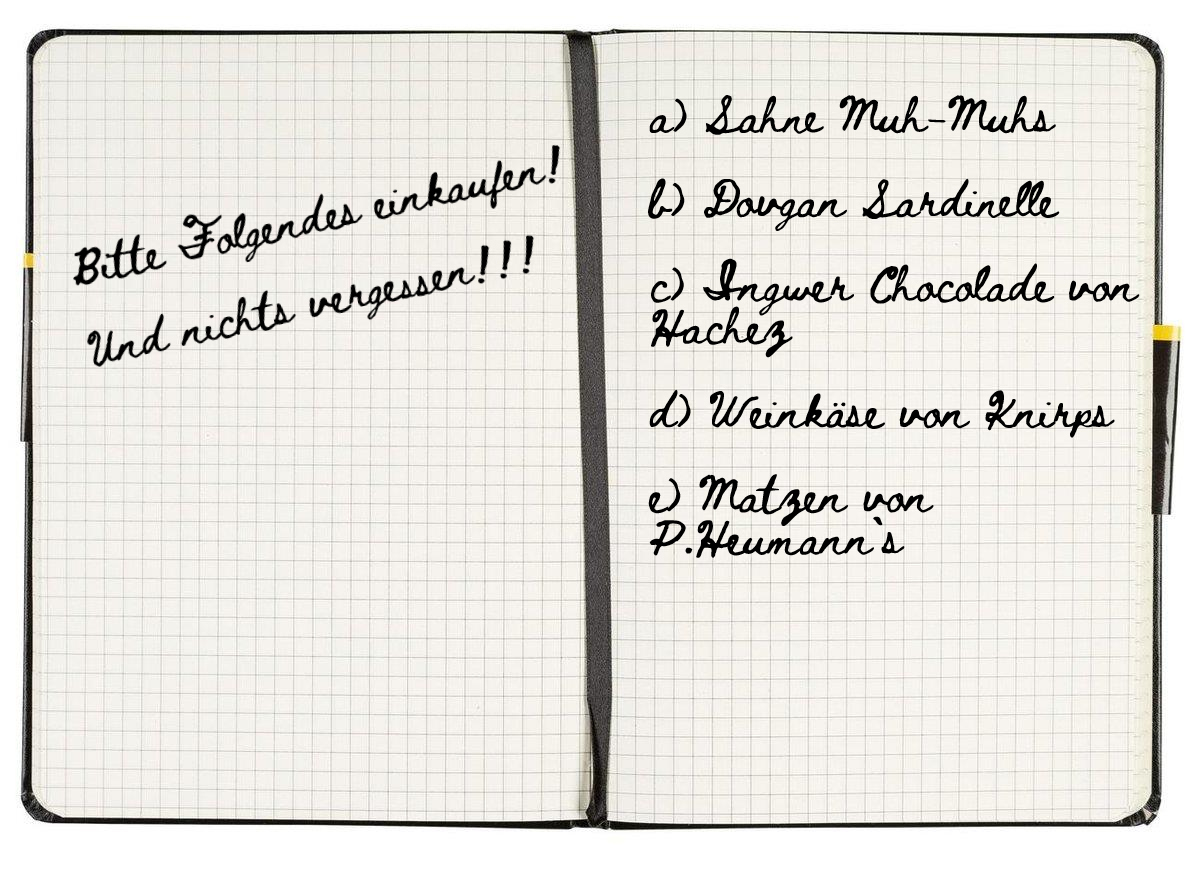 Bitte Folgendes einkaufen!
Und nichts vergessen!!!
a) Sahne Muh-Muhs
b) Dovgan Sardinelle
c) Ingwer Chocolade von
Hachez
d) Weinkäse von Knirps
e) Matzen von
P.Heumann`s